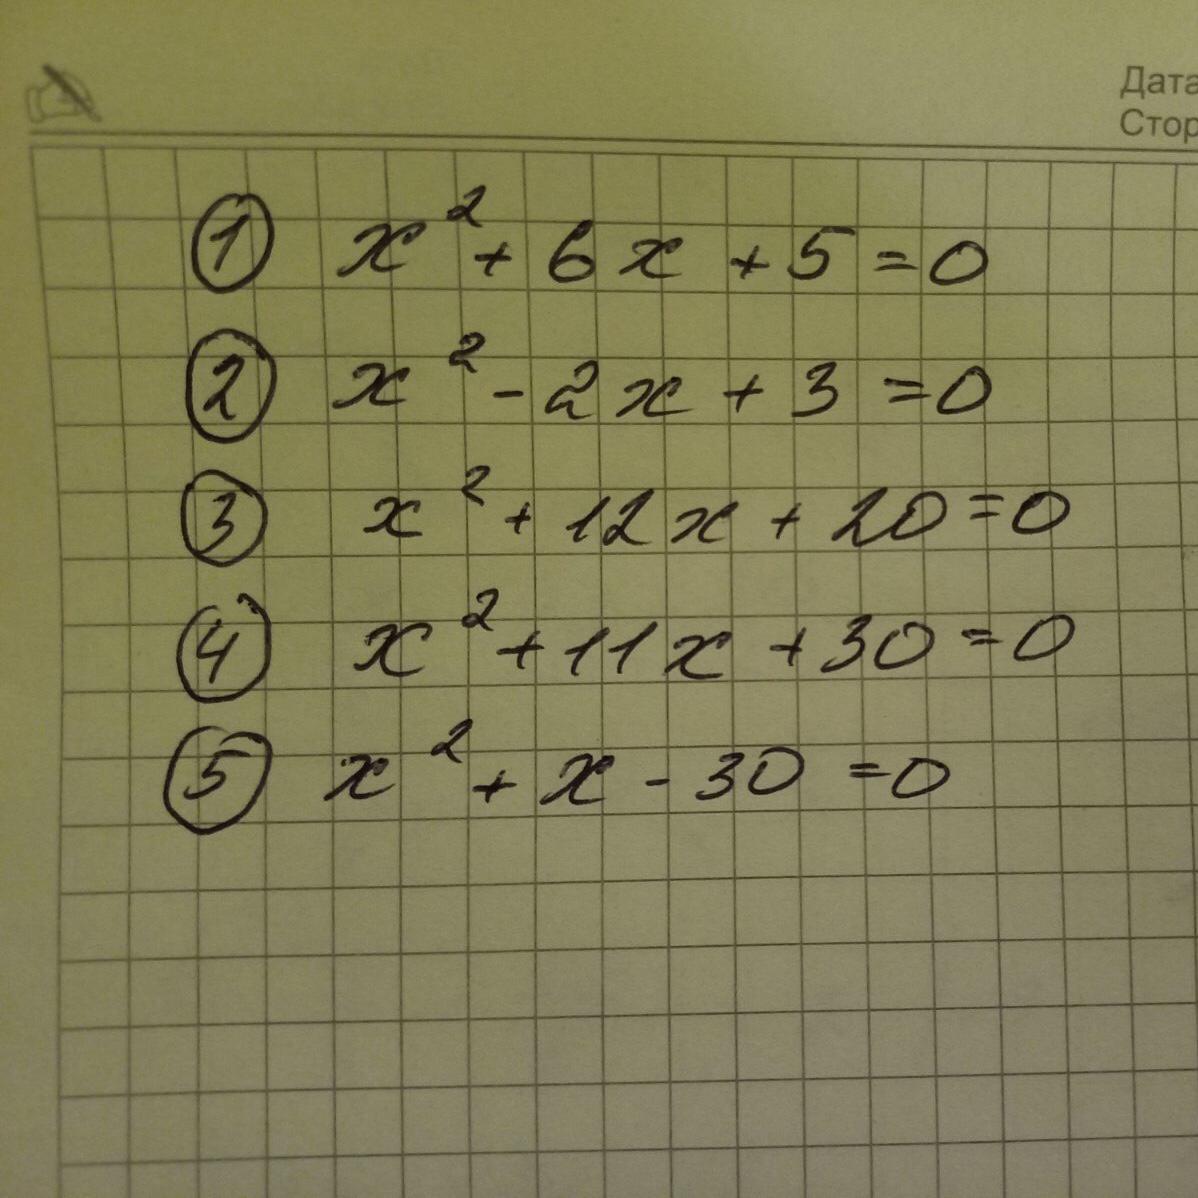 Дата
Стор
① x² + 6x + 5 = 0
② x² - 2x + 3 = 0
③ x² + 12x + 20 = 0
④ x² + 11x + 30 = 0
⑤ x² + x - 30 = 0